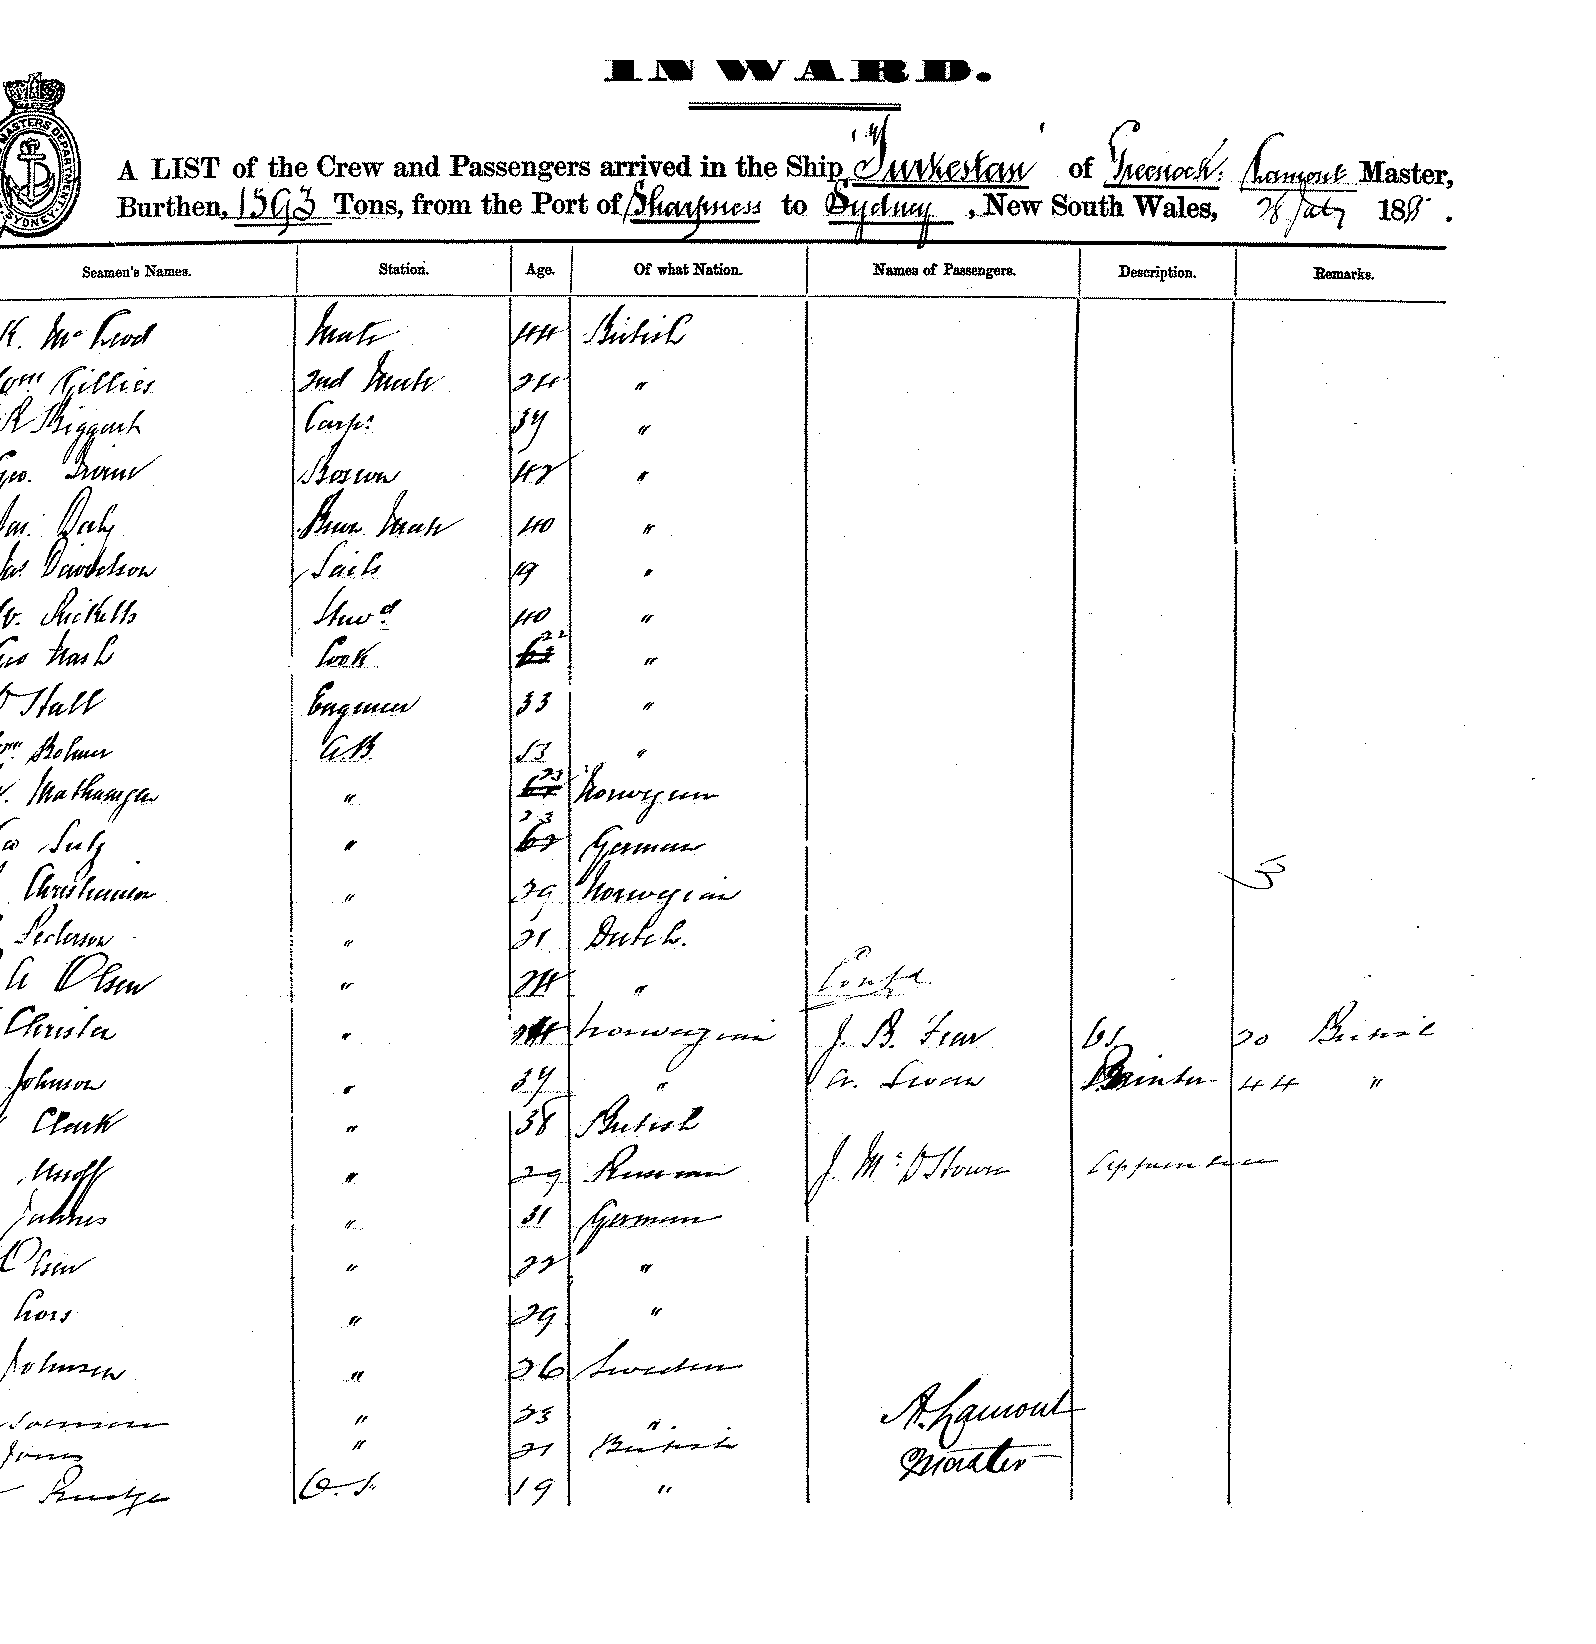 INWARD.
A LIST of the Crew and Passengers arrived in the Ship "Turkestan" of Greenock, Lamont Master,
Burthen, 1593 Tons, from the Port of Sharpness to Sydney, New South Wales, 28 July 188
Seamen's Names. Station. Age. Of what Nation. Names of Passengers. Description. Remarks.
K. McLeod Mate 44 British
Wm Gillies 2nd Mate 24 "
R Biggart Carpr 37 "
Geo. Irvine Bosun 42 "
Jas. Daly 40 "
Jas Davidson Sails 19 "
W. Ricketts Stewd 40 "
Geo Nash Cook 22 "
Hall Engineer 33 "
Wm Bolmer AB 53 "
" 23 Norwegian
" 23 German
Christiansen " 29 Norwegian
Pederson " 21 Dutch.
A Olsen " 24 " Contd
Christen " 24 Norwegian J. B. Fear OS 20 British
Johnson " 37 " A. Swan Painter 44 "
Clark " 38 British
" 29 Russian J. Mc Apprentice
" 31 German
Olsen " 22 "
Lors " 29 "
Johnsen " 26 Sweden
" 23 " A. Lamont
Jones " 21 British Master
Rudge O.S. 19 "